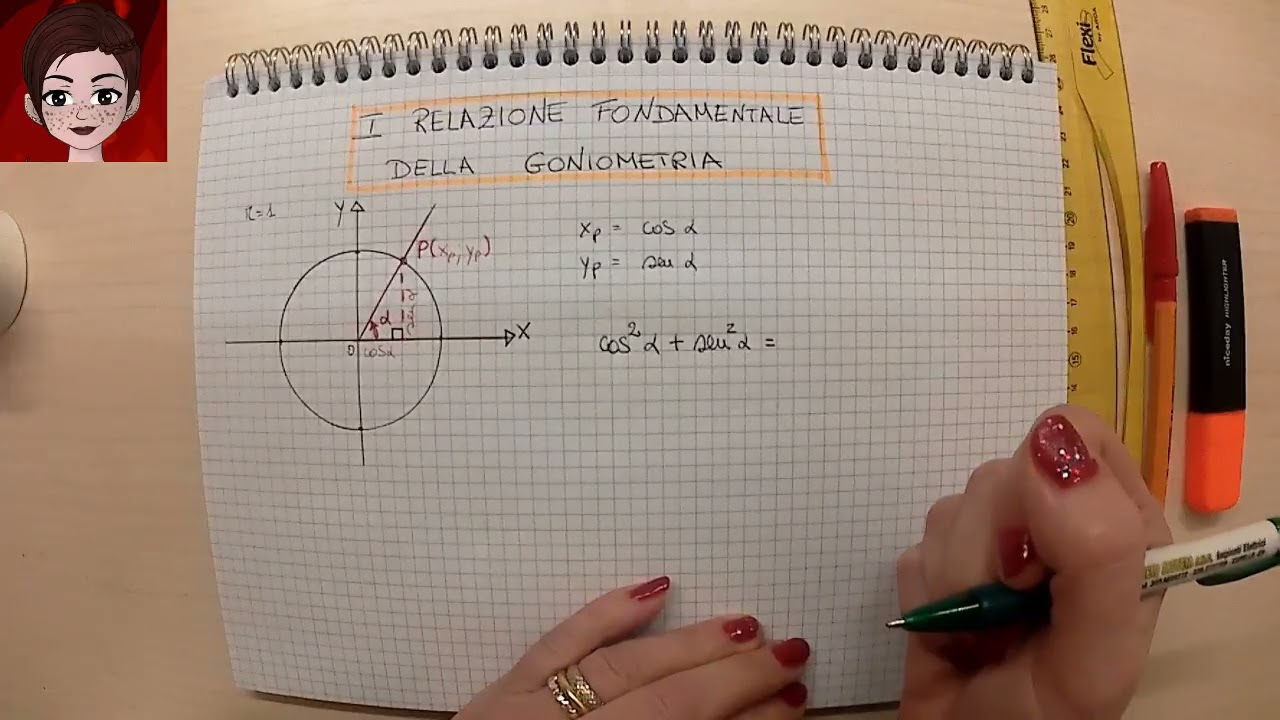 I RELAZIONE FONDAMENTALE
DELLA GONIOMETRIA
r=1
Y
P(xp; yp)
α
O
cosα
X
xp = cos α
yp = sen α
cos² α + sen² α =
Flexi
niceday HIGHLIGHTER